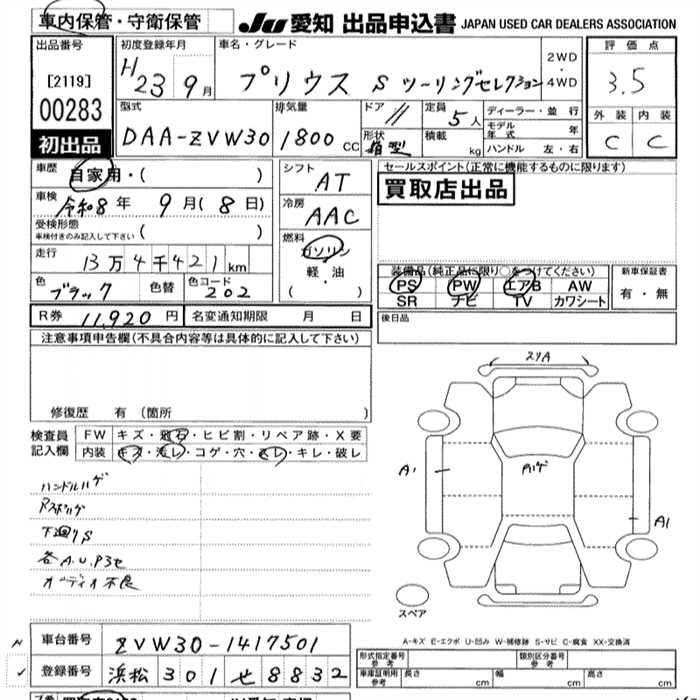 車内保管・守衛保管 JU 愛知 出品申込書 JAPAN USED CAR DEALERS ASSOCIATION
出品番号 初度登録年月 車名・グレード 2WD・4WD 評価点
[2119] H23年9月 プリウス Sツーリングセレクション 3.5
00283 型式 排気量 ドア 定員 ディーラー・並行 外装 内装
初出品 DAA-ZVW30 1800 CC 5人 モデル年式 年 C C
形状 箱型 積載 kg ハンドル 左・右
車歴 自家用・( ) シフト AT セールスポイント(正常に機能するものに限ります)
車検 令和8年 9月(8日) 冷房 AAC 買取店出品
受検形態 車検付きのみ記入して下さい ( )
走行 13万4千421km 燃料 ガソリン 軽・油 ( )
装備品(純正品に限り○をつけてください) 新車保証書
色 ブラック 色替 色コード 202 PS PW エアB AW 有・無
SR ナビ TV カワシート
R券 11,920円 名変通知期限 月 日 後日品
注意事項申告欄(不具合内容等は具体的に記入して下さい)
修復歴 有(箇所 )
検査員記入欄 FW キズ・飛石・ヒビ割・リペア跡・X要
内装 キズ・汚レ・コゲ・穴・スレ・キレ・破レ
ハンドルハゲ
下廻りS
各A.U.P3セ
オーディオ不良
A1
A1
スペア
A-キズ E-エクボ U-凹み W-補修跡 S-サビ C-腐食 XX-交換済
車台番号 ZVW30-1417501
登録番号 浜松301せ8832
形式指定番号 参考 類別区分番号 参考
車庫証明用 参考 長さ cm 幅 cm 高さ cm